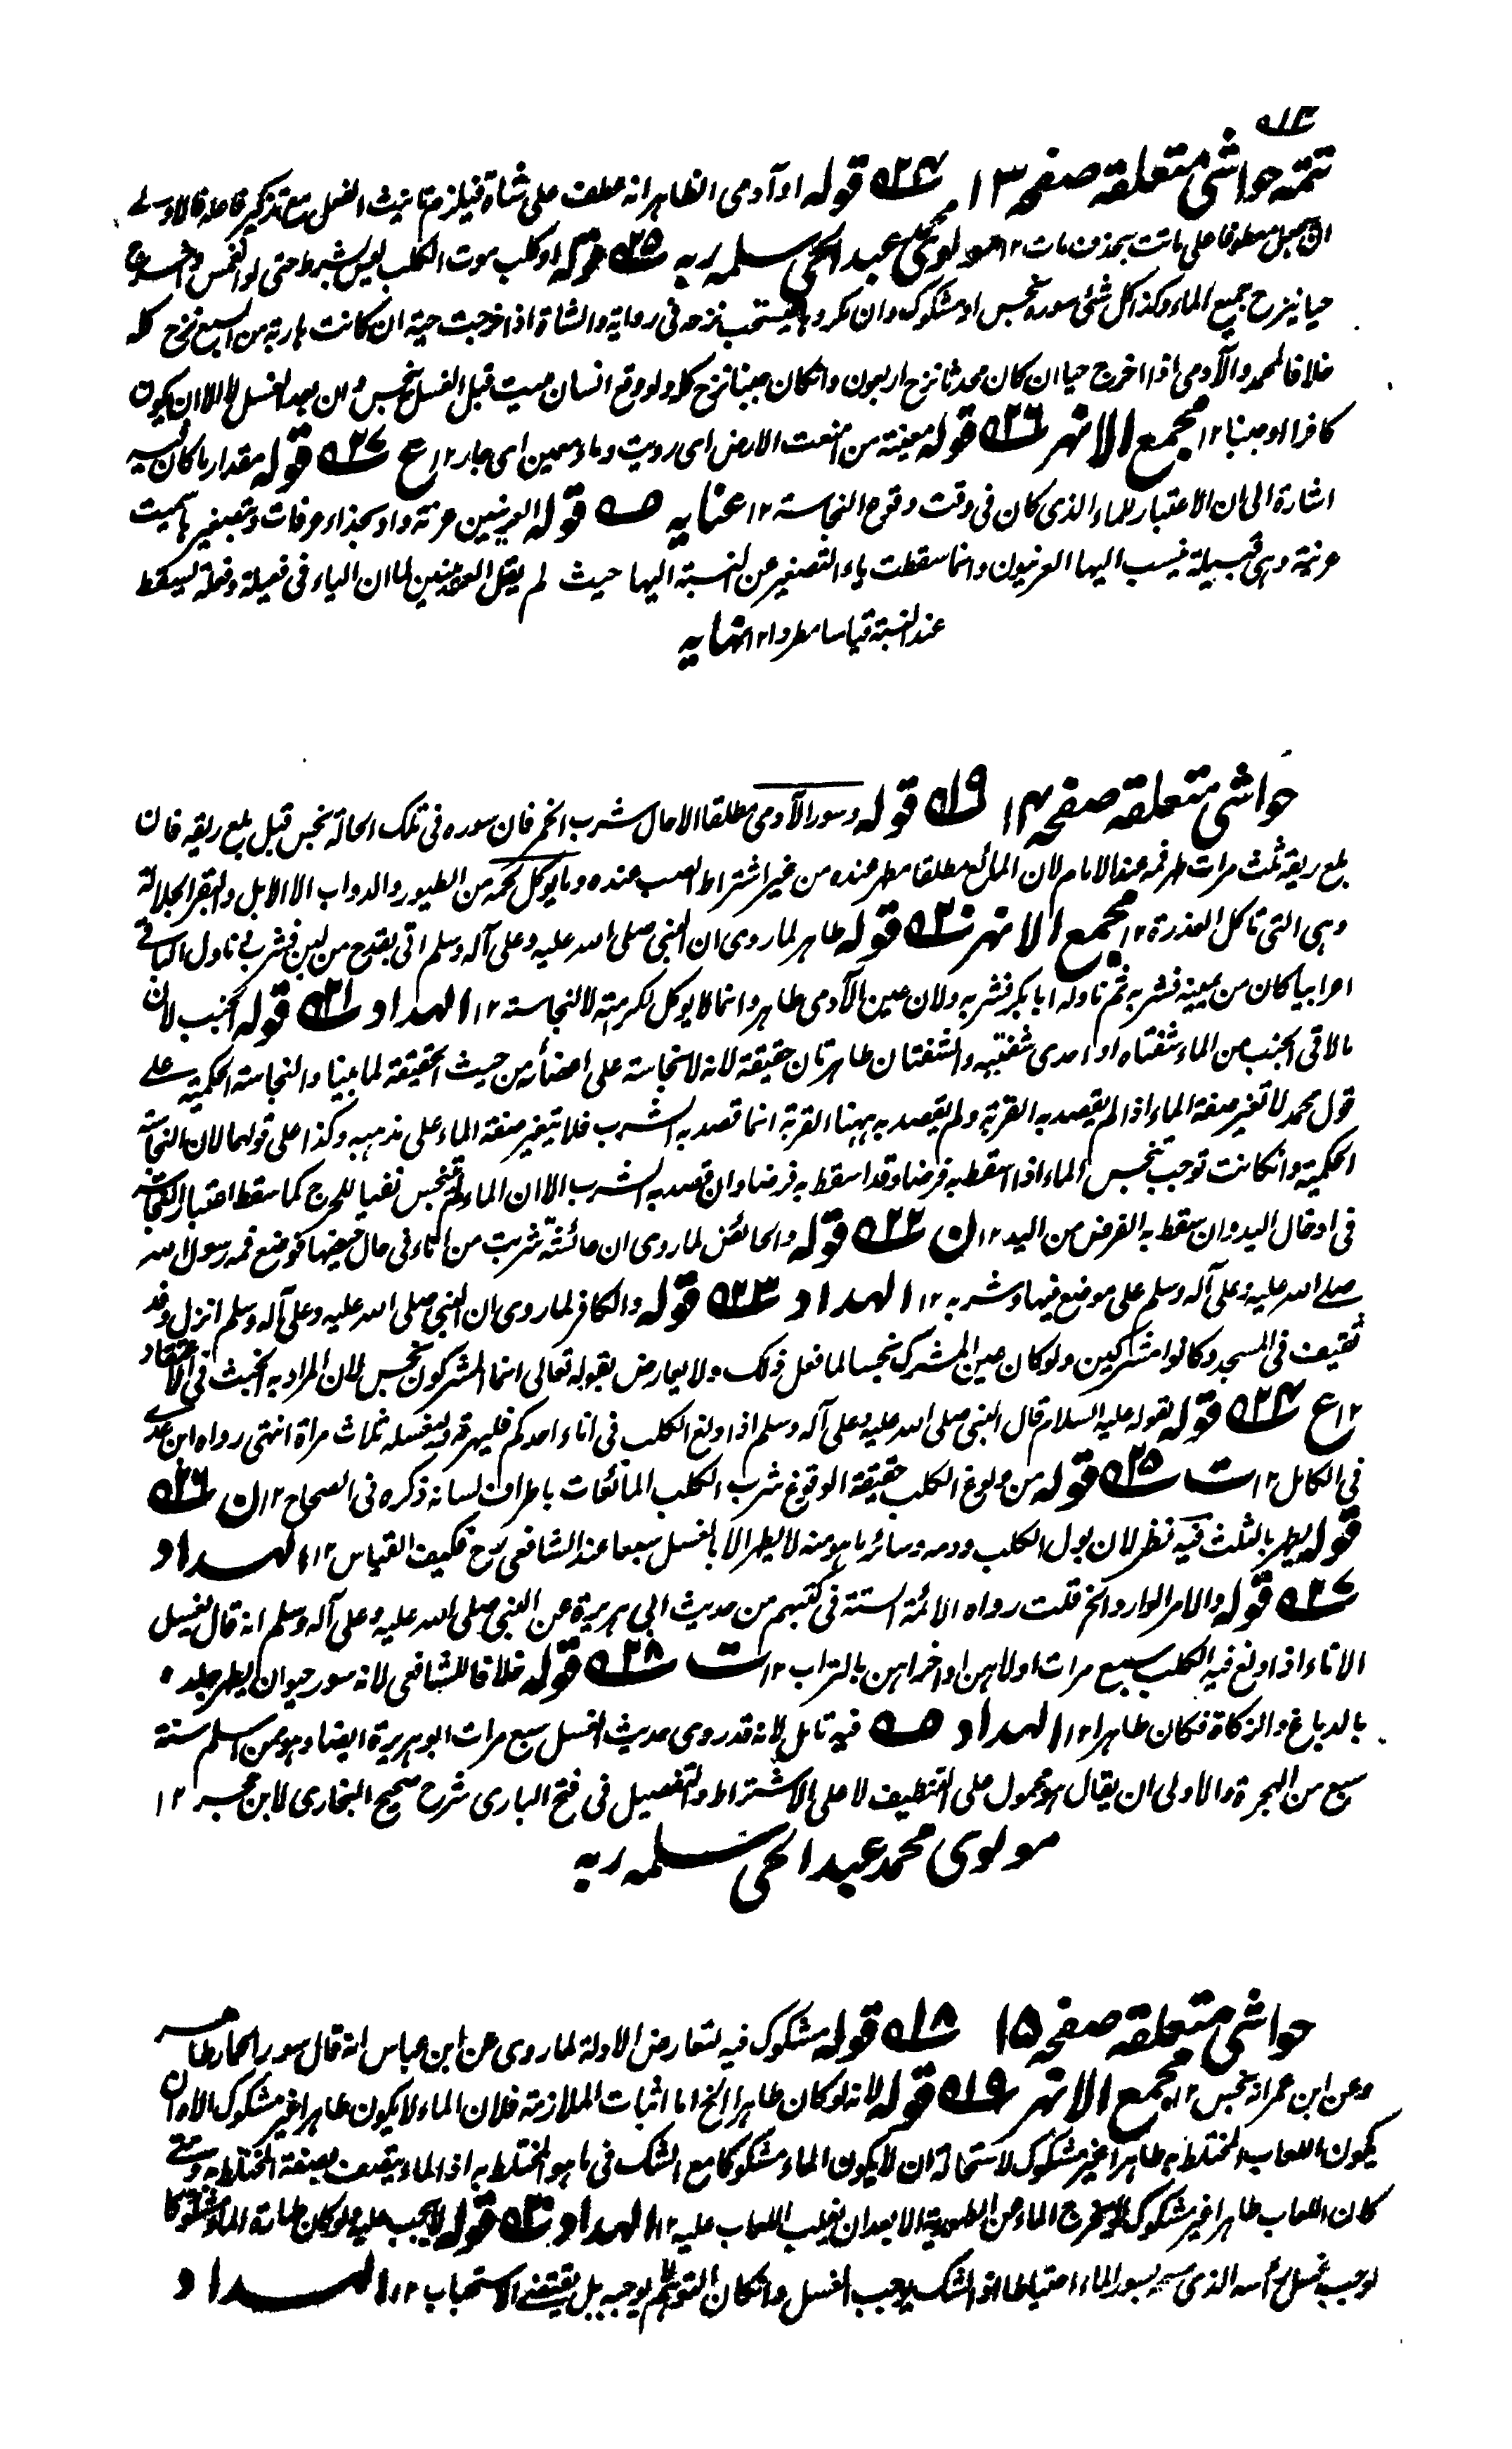 تتمه حواشی متعلقه صفحه ۱۳ ۲۴ قوله او آدمی الظاهر انه عطف علی شاة فیلزم تانیث الفعل مع تذکیر فاعله فالاولے
ان یجعل معطوفا علی ماتت بحذف مات ۱۲ مولوی محمد عبد الحی سلمه ربه ۲۵ قوله او کلب موت الکلب لیس بشرط حتی لو انغمس و اخرج
حیا ینزح جمیع الماء وکذا کل شئ سوره نجس او مشکوک وان مکروها یستحب نزحه فی روایة والشاة اذا خرجت حیة ان کانت هاربة من السبع نزح کله
خلافا لمحمد والآدمی اذا اخرج حیا ان کان محدثا نزح اربعون وانکان جنبا نزح کله ولو وقع انسان میت قبل الغسل نجس وان بعد الغسل لا الا ان یکون
کافرا او جنبا ۱۲ مجمع الانهر ۲۶ قوله معینة من امنعت الارض ای رویت وماء معین ای جار ۱۲ ع ۲۷ قوله مقدار ما کان فیه
اشارة الی ان الاعتبار للماء الذی کان فی وقت وقوع النجاسة ۱۲ عنایه صه قوله العرنیین عرنة واد بحذاء عرفات وبتصغیرها سمیت
عرینة وهی قبیلة ینسب الیها العرنیون وانما سقطت یاء التصغیر عن النسبة الیها حیث لم یقل العرینیین لما ان الیاء فی فعیلة وفعلة یسقط
عند النسبة قیاسا مطردا ۱۲ نهایه
حواشی متعلقه صفحه ۱۴ ۱۹ قوله وسور الآدمی مطلقا الا حال شرب الخمر فان سوره فی تلک الحالة نجس قبل بلع ریقه فان
بلع ریقه ثلث مرات طهر فمه عند الامام لان المائع مطلقا مطهر عنده من غیر اشتراط الصب عنده وما یوکل لحمه من الطیور والدواب الا الابل والبقر الجلالة
وهی التی تاکل العذرة ۱۲ مجمع الانهر ۲۰ قوله طاهر لما روی ان النبی صلی الله علیه وعلی آله وسلم اتی بقدح من لبن فشرب ناول الباقی
اعرابیا کان من یمینه فشربه ثم ناوله ابا بکر فشربه ولان عین الآدمی طاهر وانما لا یوکل لکرمته لا لنجاسته ۱۲ الهداد ۲۱ قوله الجنب لان
مالاقی الجنب من الماء شفتاه او احدی شفتیه والشفتان طاهرتان حقیقة لانه لا نجاسة علی اعضائه من حیث الحقیقة لما بینا والنجاسة الحکمیة علے
قول محمد لا تغیر صفة الماء اذا لم یقصد به القربة ولم یقصد به ههنا القربة انما قصد به الشرب فلا یتغیر صفة الماء علی مذهبه وکذا علی قولهما لان النجاسة
الحکمیة وانکانت توجب تنجس الماء اذا اسقط به فرضا وقد اسقط به فرضا وان قصد به الشرب الا ان الماء لم یتنجس نفیا للحرج کما سقط اعتبار النجاسة
فی ادخال الید وان سقط به الفرض من الید ۱۲ ن ۲۲ قوله والحائض لما روی ان عائشة شربت من اناء فی حال حیضها فوضع فمه رسول الله
صلے الله علیه وعلی آله وسلم علی موضع فیها وشربه ۱۲ الهداد ۲۳ قوله والکافر لما روی ان النبی صلی الله علیه وعلی آله وسلم انزل وفد
ثقیف فی المسجد وکانوا مشرکین ولو کان عین المشرک نجسا لما فعل ذلک ولا یعارض بقوله تعالی انما المشرکون نجس لان المراد به الخبث فی الاعتقاد
۱۲ ع ۲۴ قوله لقوله علیه السلام قال النبی صلی الله علیه وعلی آله وسلم اذا ولغ الکلب فی اناء احدکم فلیهرقه ولیغسله ثلاث مراة انتهی رواه ابن عدی
فی الکامل ۱۲ ت ۲۵ قوله من ولوغ الکلب حقیقة الولوغ شرب الکلب المائعات باطراف لسانه ذکره فی الصحاح ۱۲ ن ۲۶
قوله یطهر بالثلث فیه نظر لان بول الکلب ودمه وسائر ما هو منه لا یطهر الا بالغسل سبعا عند الشافعی رح فکیف القیاس ۱۲ الهداد
۲۷ قوله والامر الوارد الخ قلت رواه الائمة الستة فی کتبهم من حدیث ابی هریرة عن النبی صلی الله علیه وعلی آله وسلم انه قال یغسل
الاناء اذا ولغ فیه الکلب سبع مرات اولاهن او اخراهن بالتراب ۱۲ ت ۲۸ قوله خلافا للشافعی لانه سور حیوان یطهر جلده
بالدباغ والزکاة فکان طاهرا ۱۲ الهداد صه فیه تامل لانه قد روی حدیث الغسل سبع مرات ابو هریرة ایضا وهو ممن اسلم سنة
سبع من الهجرة والاولی ان یقال هو محمول علی التنظیف لا علی الاشتراط والتفصیل فی فتح الباری شرح صحیح البخاری لابن حجر ۱۲
مولوی محمد عبد الحی سلمه ربه
حواشی متعلقه صفحه ۱۵ ۱۸ قوله مشکوک فیه لتعارض الادلة لما روی عن ابن عباس انه قال سور الحمار طاهر
وعن ابن عمر انه نجس ۱۲ مجمع الانهر ۱۹ قوله لانه لو کان طاهرا الخ اما اثبات الملازمة فلان الماء لا یکون طاهرا غیر مشکوک الا وان
یکون اللعاب المختلط به طاهرا غیر مشکوک لاستحالة ان لا یکون الماء مشکوکا مع الشک فی ما هو المختلط به اذ الماء یتصف بصفة المختلط به ومتی
کان اللعاب طاهرا غیر مشکوک لا یخرج الماء من الطهوریة الا بعد ان یغلب اللعاب علیه ۱۲ الهداد ۲۰ قوله لا یجب علیه لو کان طهارة الماء مشکوکا
لوجب غسل رأسه الذی مسح بسور الماء احتیاطا اذ الشک یوجب الغسل وانکان التوهم لا یوجبه بل یقتضی الاستحباب ۱۲ الهداد